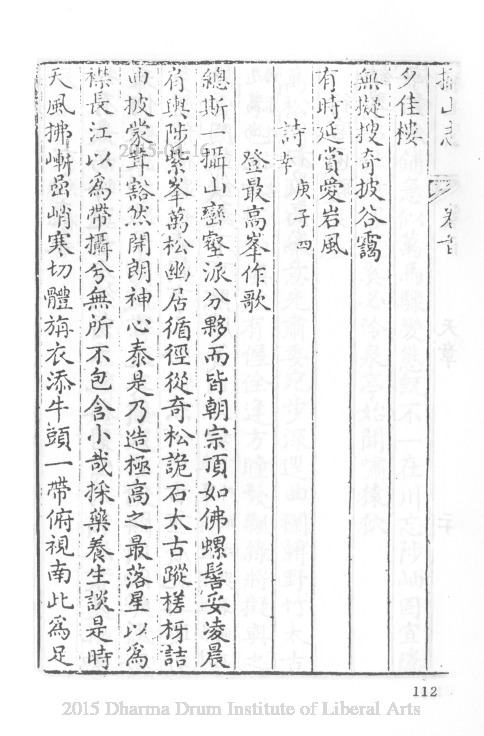 攝山志 卷首
夕佳樓
無擬搜奇披谷靄
有時延賞愛岩風
詩 庚子四幸
登最高峯作歌
總斯一攝山巒壑派分夥而皆朝宗頂如佛螺髻妥凌晨
肩輿陟紫峯萬松幽居循徑從奇松詭石太古蹤槎枒詰
曲披蒙茸豁然開朗神心泰是乃造極高之最落星以爲
襟長江以爲帶攝兮無所不包含小哉採藥養生談是時
天風拂嶃嵒峭寒切體旃衣添牛頭一帶俯視南此爲足
112
2015 Dharma Drum Institute of Liberal Arts